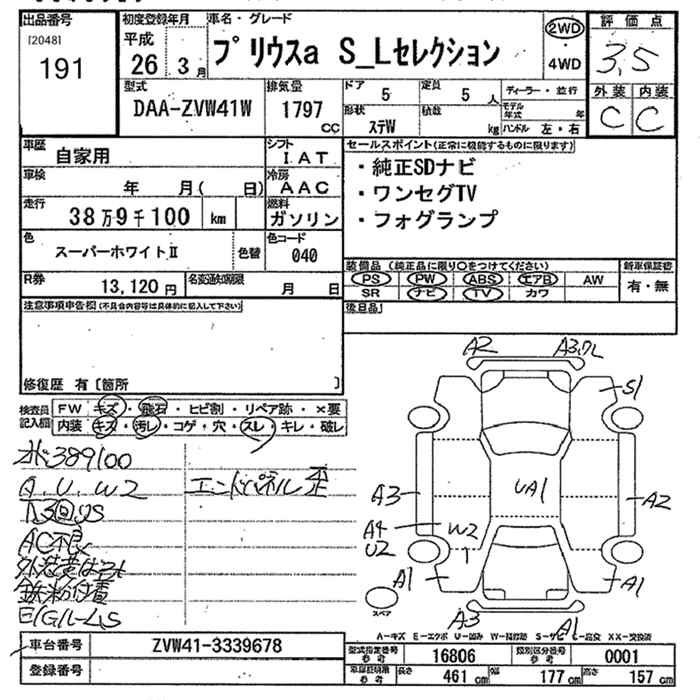 出品番号
[2048]
191
初度登録年月
平成
26 3月
車名・グレード
プリウスa S_Lセレクション
2WD
・
4WD
評価点
3.5
外装 内装
C C
型式
DAA-ZVW41W
排気量
1797
CC
ドア
5
定員
5 人
形状
ステW
積数
kg
ディーラー・並行
モデル年式 年
ハンドル 左・右
車歴
自家用
シフト
I.AT
車検
年 月( 日)
冷房
AAC
走行
38万9千100 km
燃料
ガソリン
色
スーパーホワイトⅡ
色替
色コード
040
R券
13,120 円
名変通知期限
月 日
セールスポイント(正常に機能するものに限ります)
・純正SDナビ
・ワンセグTV
・フォグランプ
装備品 (純正品に限り○をつけてください)
PS PW ABS エアB AW
SR ナビ TV カワ
新車保証書
有・無
後日品
注意事項申告欄(不具合内容等は具体的に記入して下さい)
修復歴 有 [箇所 ]
検査員記入欄
FW キズ・飛石・ヒビ割・リペア跡・×要
内装 キズ・汚レ・コゲ・穴・スレ・キレ・破レ
389100
A.U.W2
エンドパネル歪
下回りS
AC不良
鉄粉付着
E/Gルーム S
A2
A3
S1
A3
UA1
A2
A4
U2
W2
A1
A1
A3
A1
スペア
A-キズ E-エクボ U-凹み W-補修跡 S-サビ C-腐食 XX-交換済
車台番号
ZVW41-3339678
登録番号
型式指定番号 参考
16806
類別区分番号 参考
0001
車庫証明用 参考
長さ 461 cm 幅 177 cm 高さ 157 cm